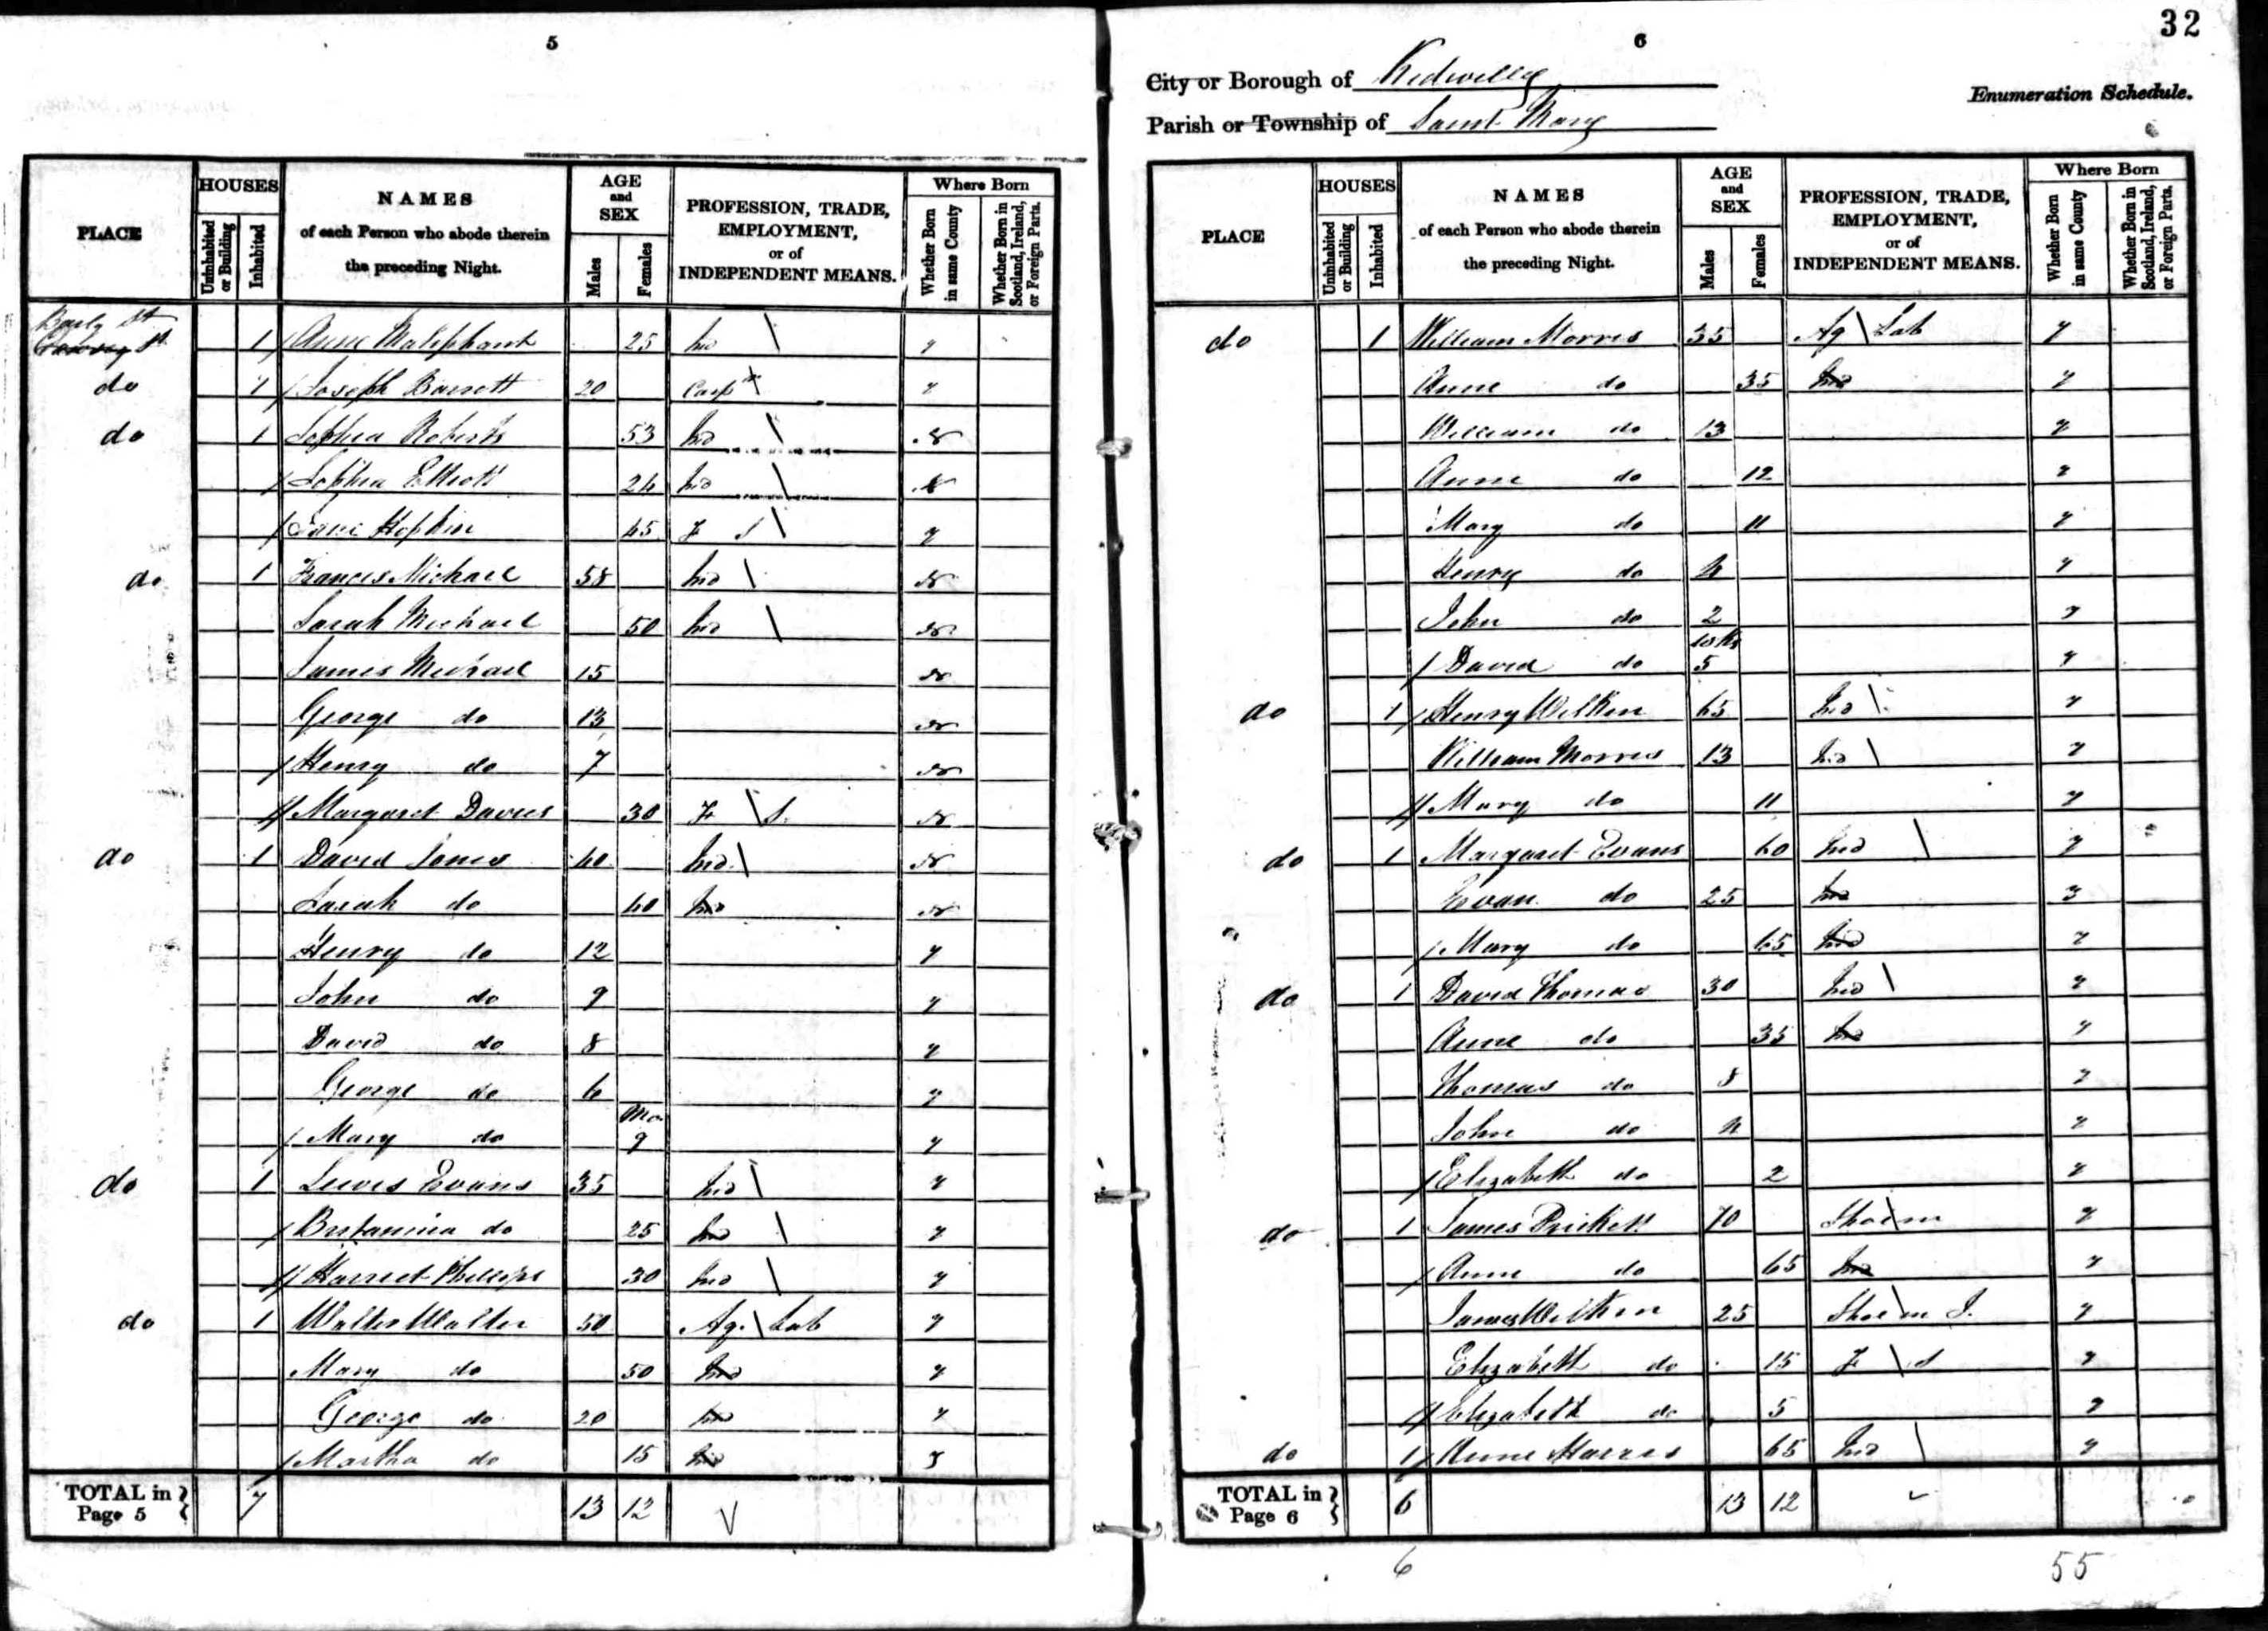 5
PLACE
HOUSES
Uninhabited or Building
Inhabited
NAMES
of each Person who abode therein
the preceding Night.
AGE
and
SEX
Males
Females
PROFESSION, TRADE,
EMPLOYMENT,
or of
INDEPENDENT MEANS.
Where Born
Whether Born in same County
Whether Born in Scotland, Ireland, or Foreign Parts.
St 1 Anne Maliphant 25 Ind y
do 1 Joseph Barrett 20 Carp y
do 1 Sophia Roberts 53 Ind N
Sophia Elliott 24 Ind N
Jane Hopkin 45 F S y
do 1 Francis Michael 58 Ind N
Sarah Michael 50 Ind N
James Michael 15 N
George do 13 N
Henry do 7 N
Margaret Davies 30 F S N
do 1 David Jones 40 Ind N
Sarah do 40 Ind N
Henry do 12 y
John do 9 y
David do 8 y
George do 6 y
Mary do Mo 9 y
do 1 Lewis Evans 35 Ind y
Britannia do 25 Ind y
Harriet Phillips 30 Ind y
do 1 Walter Walter 50 Ag Lab y
Mary do 50 Ind y
George do 20 Ind y
Martha do 15 Ind y
TOTAL in
Page 5 7 13 12
32
6
City or Borough of Kidwelly
Enumeration Schedule.
Parish or Township of Saint Mary
PLACE
HOUSES
Uninhabited or Building
Inhabited
NAMES
of each Person who abode therein
the preceding Night.
AGE
and
SEX
Males
Females
PROFESSION, TRADE,
EMPLOYMENT,
or of
INDEPENDENT MEANS.
Where Born
Whether Born in same County
Whether Born in Scotland, Ireland, or Foreign Parts.
do 1 William Morris 35 Ag Lab y
Anne do 35 Ind y
William do 13 y
Anne do 12 y
Mary do 11 y
Henry do 4 y
John do 2 y
David do wks 5 y
do 1 Henry Wilkin 65 Ind y
William Morris 13 Ind y
Mary do 11 y
do 1 Margaret Evans 60 Ind y
Evan do 25 Ind y
Mary do 65 Ind y
do 1 David Thomas 30 Ind y
Anne do 35 Ind y
Thomas do 8 y
John do 4 y
Elizabeth do 2 y
do 1 James Prickett 70 Shoe m y
Anne do 65 Ind y
James Wilkin 25 Shoe m J. y
Elizabeth do 15 F S y
Elizabeth do 5 y
do 1 Anne Harris 65 Ind y
TOTAL in
Page 6 6 13 12
6
55